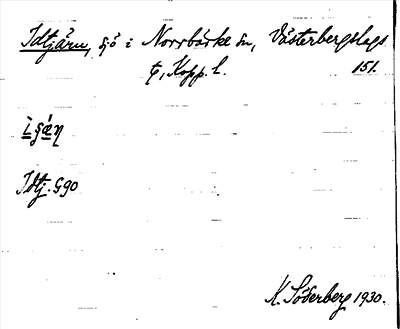 Idtjärn, sjö i Norrbärke sn, Västerbergslags
tg, Kopp. l. 151.
Idtj. G90
K. Söderberg 1930.